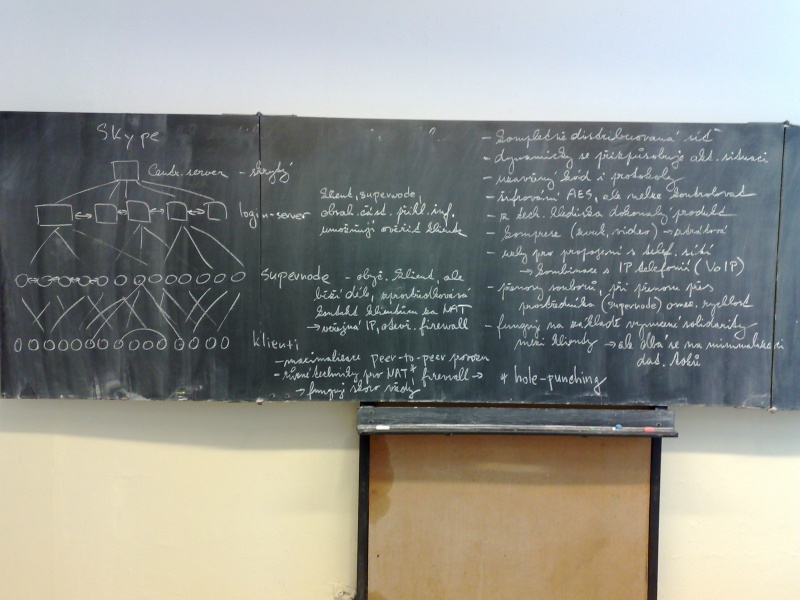 Skype
Centr. server - skrytý
login-server
klient, supernode,
obsah. část. přihl. inf.
umožňují ověřit klienta
supernode - obyč. klient, ale
běží déle, zprostředkovává
kontakt klientům za NAT
→ veřejná IP, otevř. firewall
klienti
- maximalizace peer-to-peer provozu
- různé techniky pro NAT* firewall →
→ funguj skoro vždy
* hole-punching
- kompletně distribuovaná síť
- dynamicky se přizpůsobuje akt. situaci
- uzavřený kód i protokoly
- šifrování AES, ale nelze kontrolovat
- z tech. hlediska dokonalý produkt
- komprese (zvuk, video) → ztrátová
- uzly pro propojení s telef. sítí
→ kombinace s IP telefonií (VoIP)
- přenosy souborů, při přenosu přes
prostředníka (supernode) omez. rychlost
- funguj na základě vynucené solidarity
mezi klienty → ale dbá se na minimalizaci
dat. toků